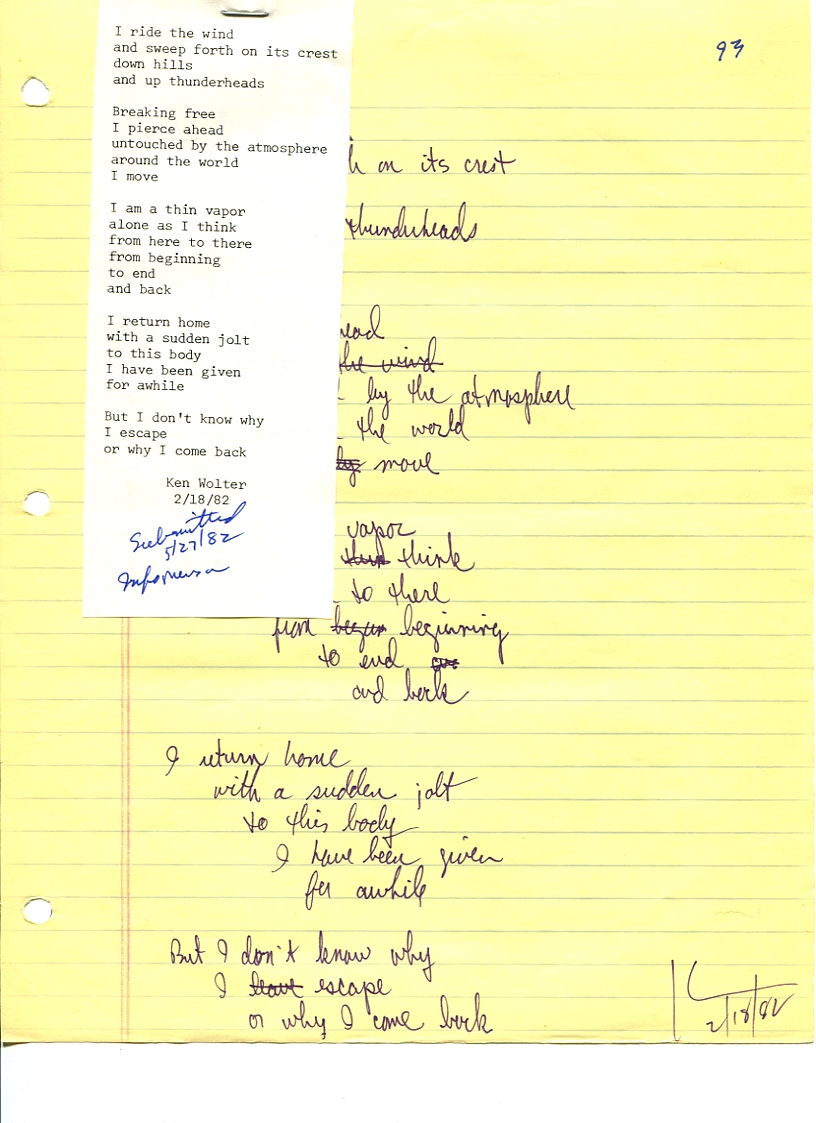 I ride the wind
and sweep forth on its crest
down hills
and up thunderheads
Breaking free
I pierce ahead
untouched by the atmosphere
around the world
I move
I am a thin vapor
alone as I think
from here to there
from beginning
to end
and back
I return home
with a sudden jolt
to this body
I have been given
for awhile
But I don't know why
I escape
or why I come back
Ken Wolter
2/18/82
Submitted
5/27/82
93
h on its crest
thunderheads
head
the wind
by the atmosphere
the world
move
vapor
think
to there
from began beginning
to end
and back
I return home
with a sudden jolt
to this body
I have been given
for awhile
But I don't know why
I leave escape
or why I come back
2/18/82